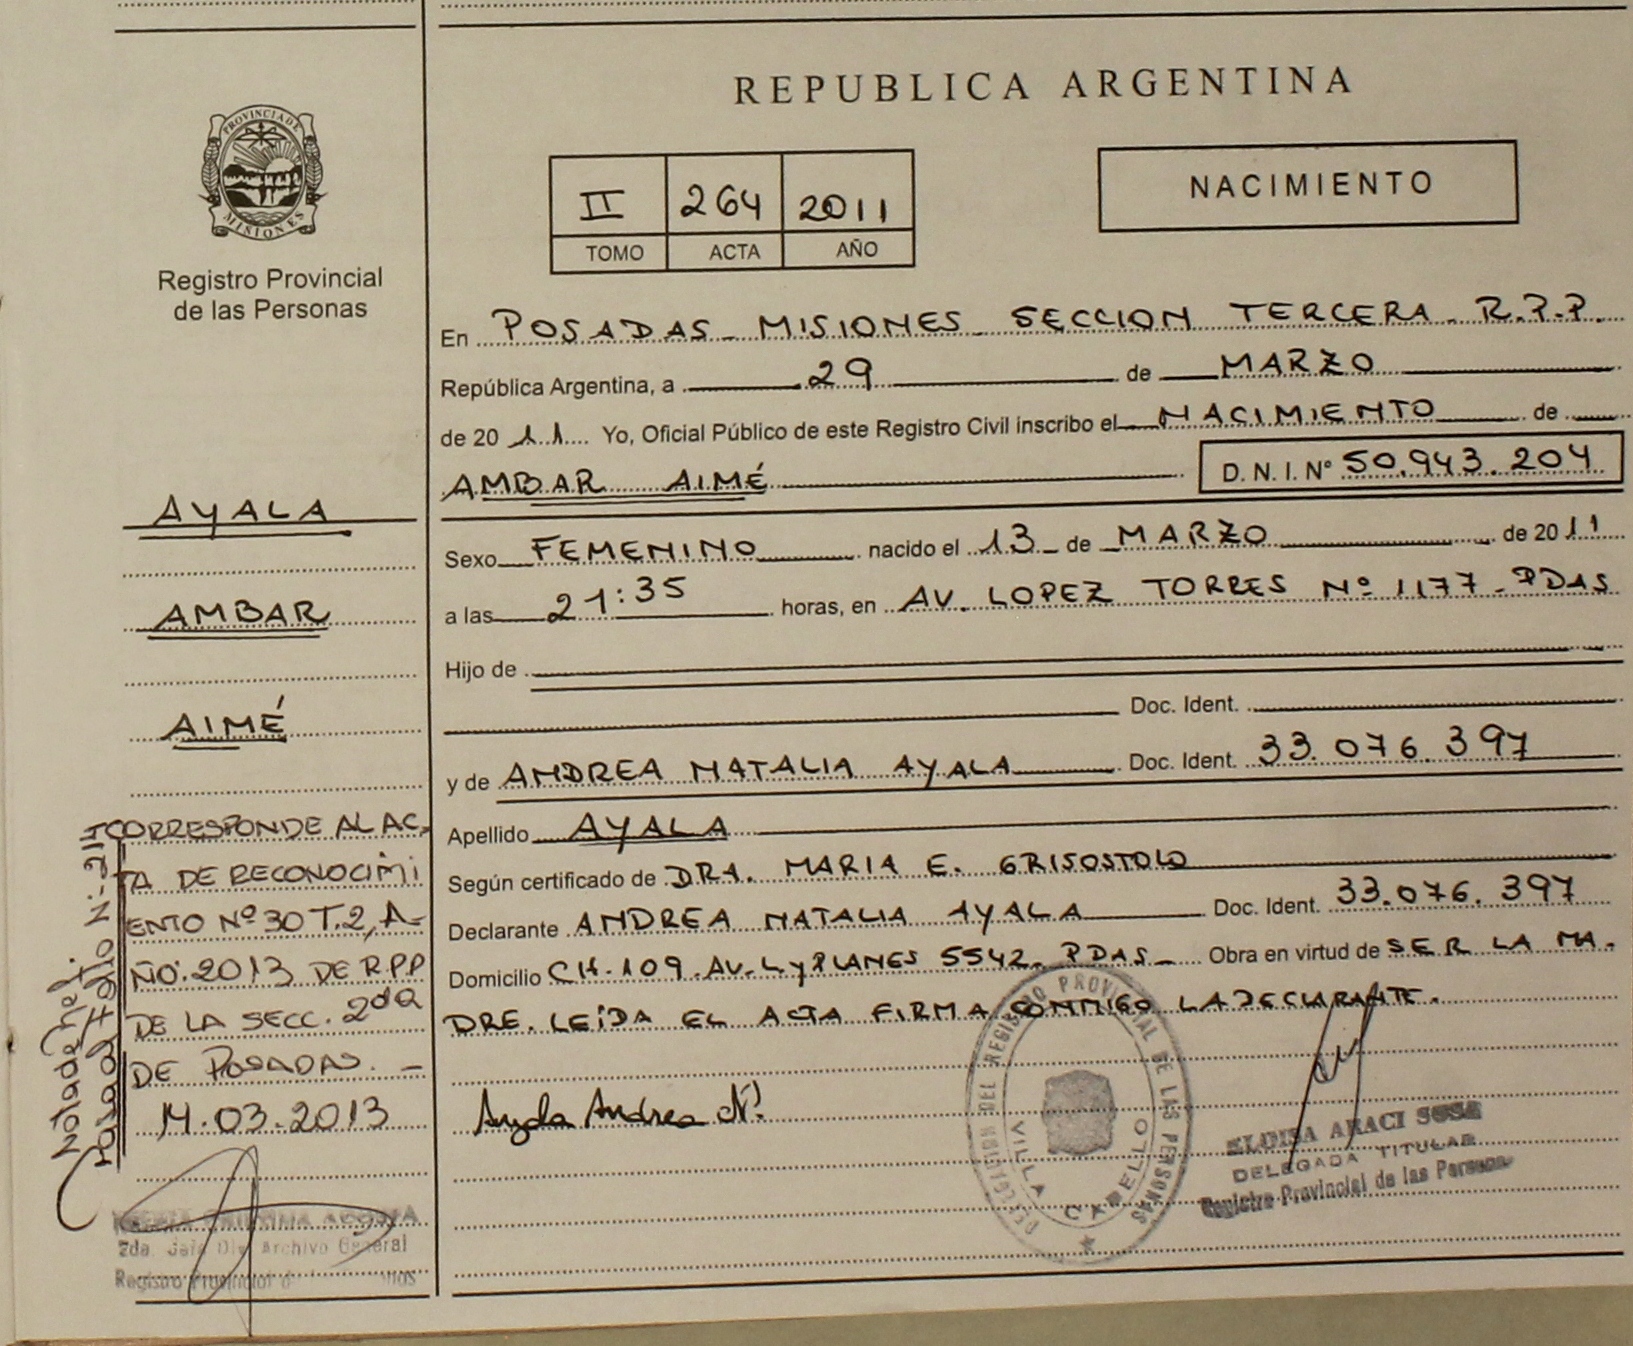 PROVINCIA DE
MISIONES
Registro Provincial
de las Personas
AYALA
AMBAR
AIMÉ
CORRESPONDE AL AC-
TA DE RECONOCIMI
ENTO Nº 30 T.2, A-
ÑO. 2013 DE R.P.P
DE LA SECC. 2da
DE POSADAS. -
14.03.2013
2da. Jefa Div Archivo General
Registro Provincial
REPUBLICA ARGENTINA
II 264 2011
TOMO ACTA AÑO
NACIMIENTO
En POSADAS - MISIONES - SECCION TERCERA - R.P.P.
República Argentina, a 29 de MARZO
de 20 11 Yo, Oficial Público de este Registro Civil inscribo el NACIMIENTO de
AMBAR AIMÉ D. N. I. Nº 50.943.204
Sexo FEMENINO nacido el 13 de MARZO de 20 11
a las 21:35 horas, en AV. LOPEZ TORRES Nº 1177 - PDAS
Hijo de
Doc. Ident.
y de ANDREA NATALIA AYALA Doc. Ident. 33.076.397
Apellido AYALA
Según certificado de DRA. MARIA E. GRISOSTOLO
Declarante ANDREA NATALIA AYALA Doc. Ident. 33.076.397
Domicilio CH. 109. AV. L y PLANES 5542. PDAS - Obra en virtud de SER LA MA-
DRE. LEÍDA EL ACTA FIRMA CONMIGO LA DECLARANTE.
Ayala Andrea N.
DELEGACION DEL REGISTRO PROVINCIAL DE LAS PERSONAS
VILLA CABELLO
ELOISA ARACI SOSA
DELEGADA TITULAR
Registro Provincial de las Personas